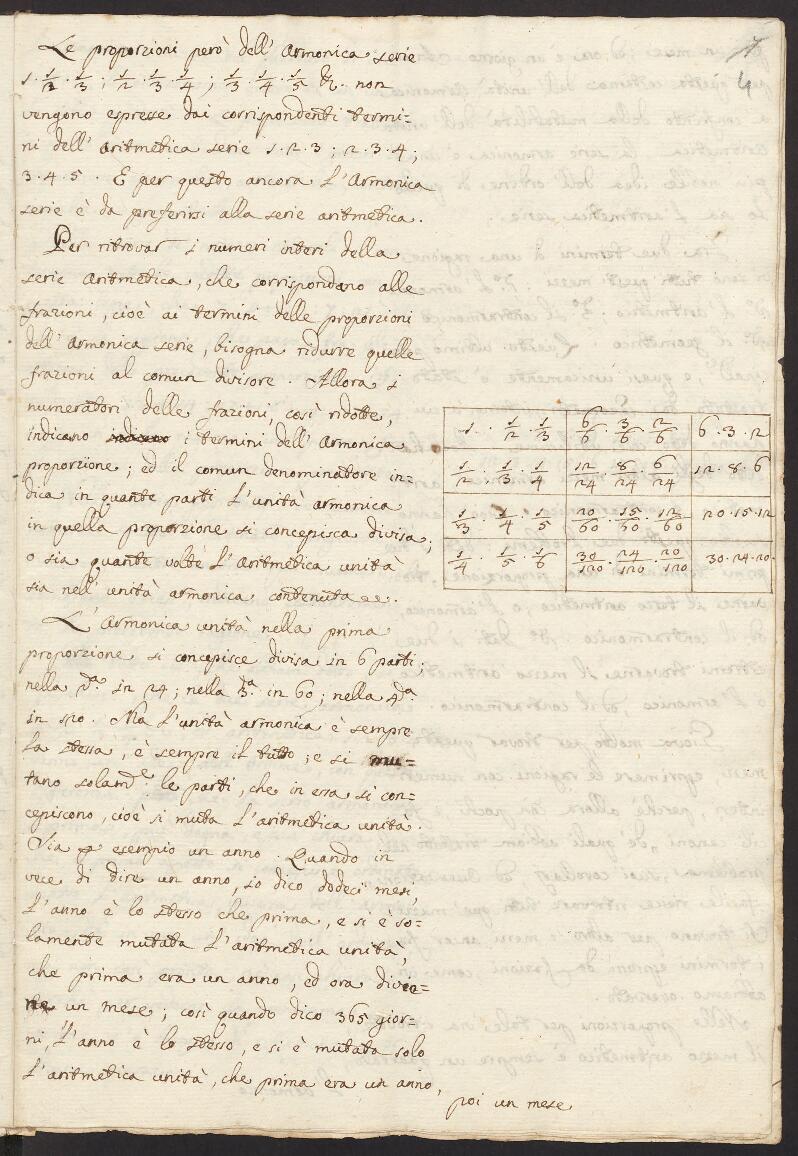 4
Le proporzioni però dell' Armonica serie
1 · 1/2 · 1/3 ; 1/2 · 1/3 · 1/4 ; 1/3 · 1/4 · 1/5 &c. non
vengono espresse dai corrispondenti termi=
ni dell' aritmetica serie 1 · 2 · 3 ; 2 · 3 · 4 ;
3 · 4 · 5 . E per questo ancora l'Armonica
serie è da preferirsi alla serie aritmetica .
Per ritrovar i numeri interi della
serie aritmetica, che corrispondano alle
frazioni, cioè ai termini delle proporzioni
dell' Armonica serie, bisogna ridurre quelle
frazioni al comun divisore . Allora i
numeratori delle frazioni, così ridotte,
indicano indicano i termini dell' Armonica
proporzione ; ed il comun denominatore in=
dica in quante parti l'unità armonica
in quella proporzione si concepisca divisa ;
o sia quante volte l'aritmetica unità
sia nell' unità armonica contenuta .
1 · 1/2 · 1/3 | 6/6 · 3/6 · 2/6 | 6 · 3 · 2
1/2 · 1/3 · 1/4 | 12/24 · 8/24 · 6/24 | 12 · 8 · 6
1/3 · 1/4 · 1/5 | 20/60 · 15/60 · 12/60 | 20 · 15 · 12
1/4 · 1/5 · 1/6 | 30/120 · 24/120 · 20/120 | 30 · 24 · 20
L'Armonica unità nella prima
proporzione si concepisce divisa in 6 parti ;
nella 2da. in 24 ; nella 3a. in 60 ; nella 4ta.
in 120 . Ma l'unità armonica è sempre
la stessa, è sempre il tutto ; e si mu=
tano solamte. le parti, che in essa si con=
cepiscono, cioè si muta l'aritmetica unità .
Sia p esempio un anno . Quando in
vece di dire un anno, io dico dodeci mesi,
l'anno è lo stesso che prima, e si è so=
lamente mutata l'aritmetica unità,
che prima era un anno, ed ora divie=
ne un mese ; così quando dico 365 gior=
ni, l'anno è lo stesso, e si è mutata solo
l'aritmetica unità, che prima era un anno,
poi un mese